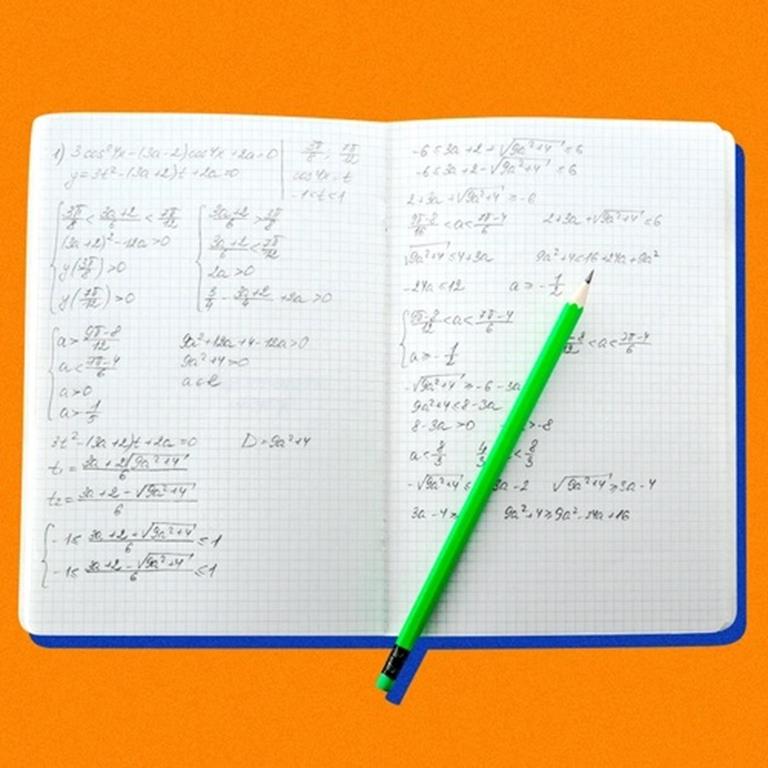 1) 3 cos²4x-(3a-2)cos4x+2a=0
3π/8, 7π/12
y=3t²-(3a+2)t+2a=0
cos4x=t
-1<t<1
3π/8 < 3a+2/6 < 7π/12
(3a+2)²-12a>0
y(3π/8)>0
y(7π/12)>0
3a+2/6 > 3π/8
3a+2/6 < 7π/12
2a>0
3/4 - 3a+2/4 + 2a>0
a> 9π-8/12
a< 7π-4/6
a>0
a> 1/5
9a²+12a+4-12a>0
9a²+4>0
a∈R
3t²-(3a+2)t+2a=0 D=9a²+4
t₁= 3a+2√9a²+4/6
t₂= 3a+2-√9a²+4/6
-1≤ 3a+2+√9a²+4/6 ≤1
-1≤ 3a+2-√9a²+4/6 ≤1
-6≤3a+2+√9a²+4 ≤6
-6≤3a+2-√9a²+4 ≤6
2+3a+√9a²+4 ≥-6
<a< 7π-4/6 2+3a+√9a²+4≤6
√9a²+4 ≤4+3a 9a²+4≤16+24a+9a²
-24a≤12 a≥- 1/2
9π-8/12 <a< 7π-4/6
a≥- 1/2
-8/12 <a< 7π-4/6
-√9a²+4 ≥-6-3a
9a²+4≤8-3a
8-3a>0 >-8
a< 8/3 4/3 < 8/3
-√9a²+4 ≤ 3a-2 √9a²+4 ≥3a-4
3a-4≥ 9a²+4≥9a²-24a+16